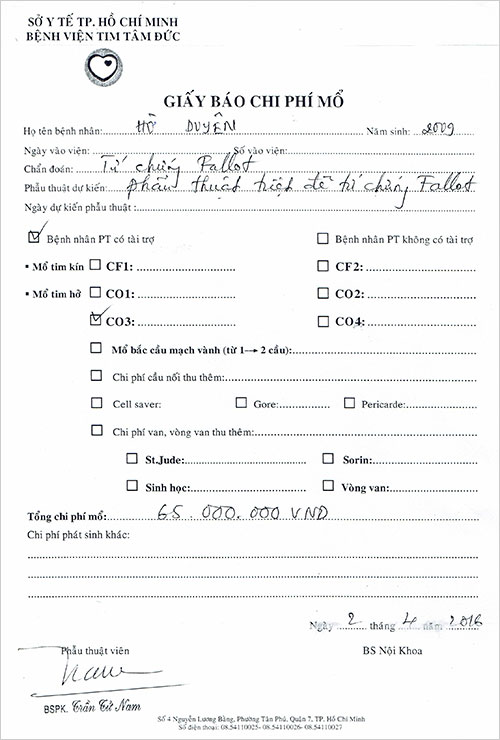 SỞ Y TẾ TP. HỒ CHÍ MINH
BỆNH VIỆN TIM TÂM ĐỨC
GIẤY BÁO CHI PHÍ MỔ
Họ tên bệnh nhân: HỒ DUYÊN Năm sinh: 2009
Ngày vào viện: Số vào viện:
Chẩn đoán: Tứ chứng Fallot
Phẫu thuật dự kiến: phẫu thuật triệt để tứ chứng Fallot
Ngày dự kiến phẫu thuật :
Bệnh nhân PT có tài trợ Bệnh nhân PT không có tài trợ
▪ Mổ tim kín CF1: CF2:
▪ Mổ tim hở CO1: CO2:
CO3: CO4:
Mổ bắc cầu mạch vành (từ 1→ 2 cầu):
Chi phí cầu nối thu thêm:
Cell saver: Gore: Pericarde:
Chi phí van, vòng van thu thêm:
St.Jude: Sorin:
Sinh học: Vòng van:
Tổng chi phí mổ: 65.000.000 VND
Chi phí phát sinh khác:
Ngày 2 tháng 4 năm 2016
Phẫu thuật viên BS Nội Khoa
BSPK. Trần Tử Nam
Số 4 Nguyễn Lương Bằng, Phường Tân Phú, Quận 7, TP. Hồ Chí Minh
Số điện thoại: 08.54110025- 08.54110026- 08.54110027